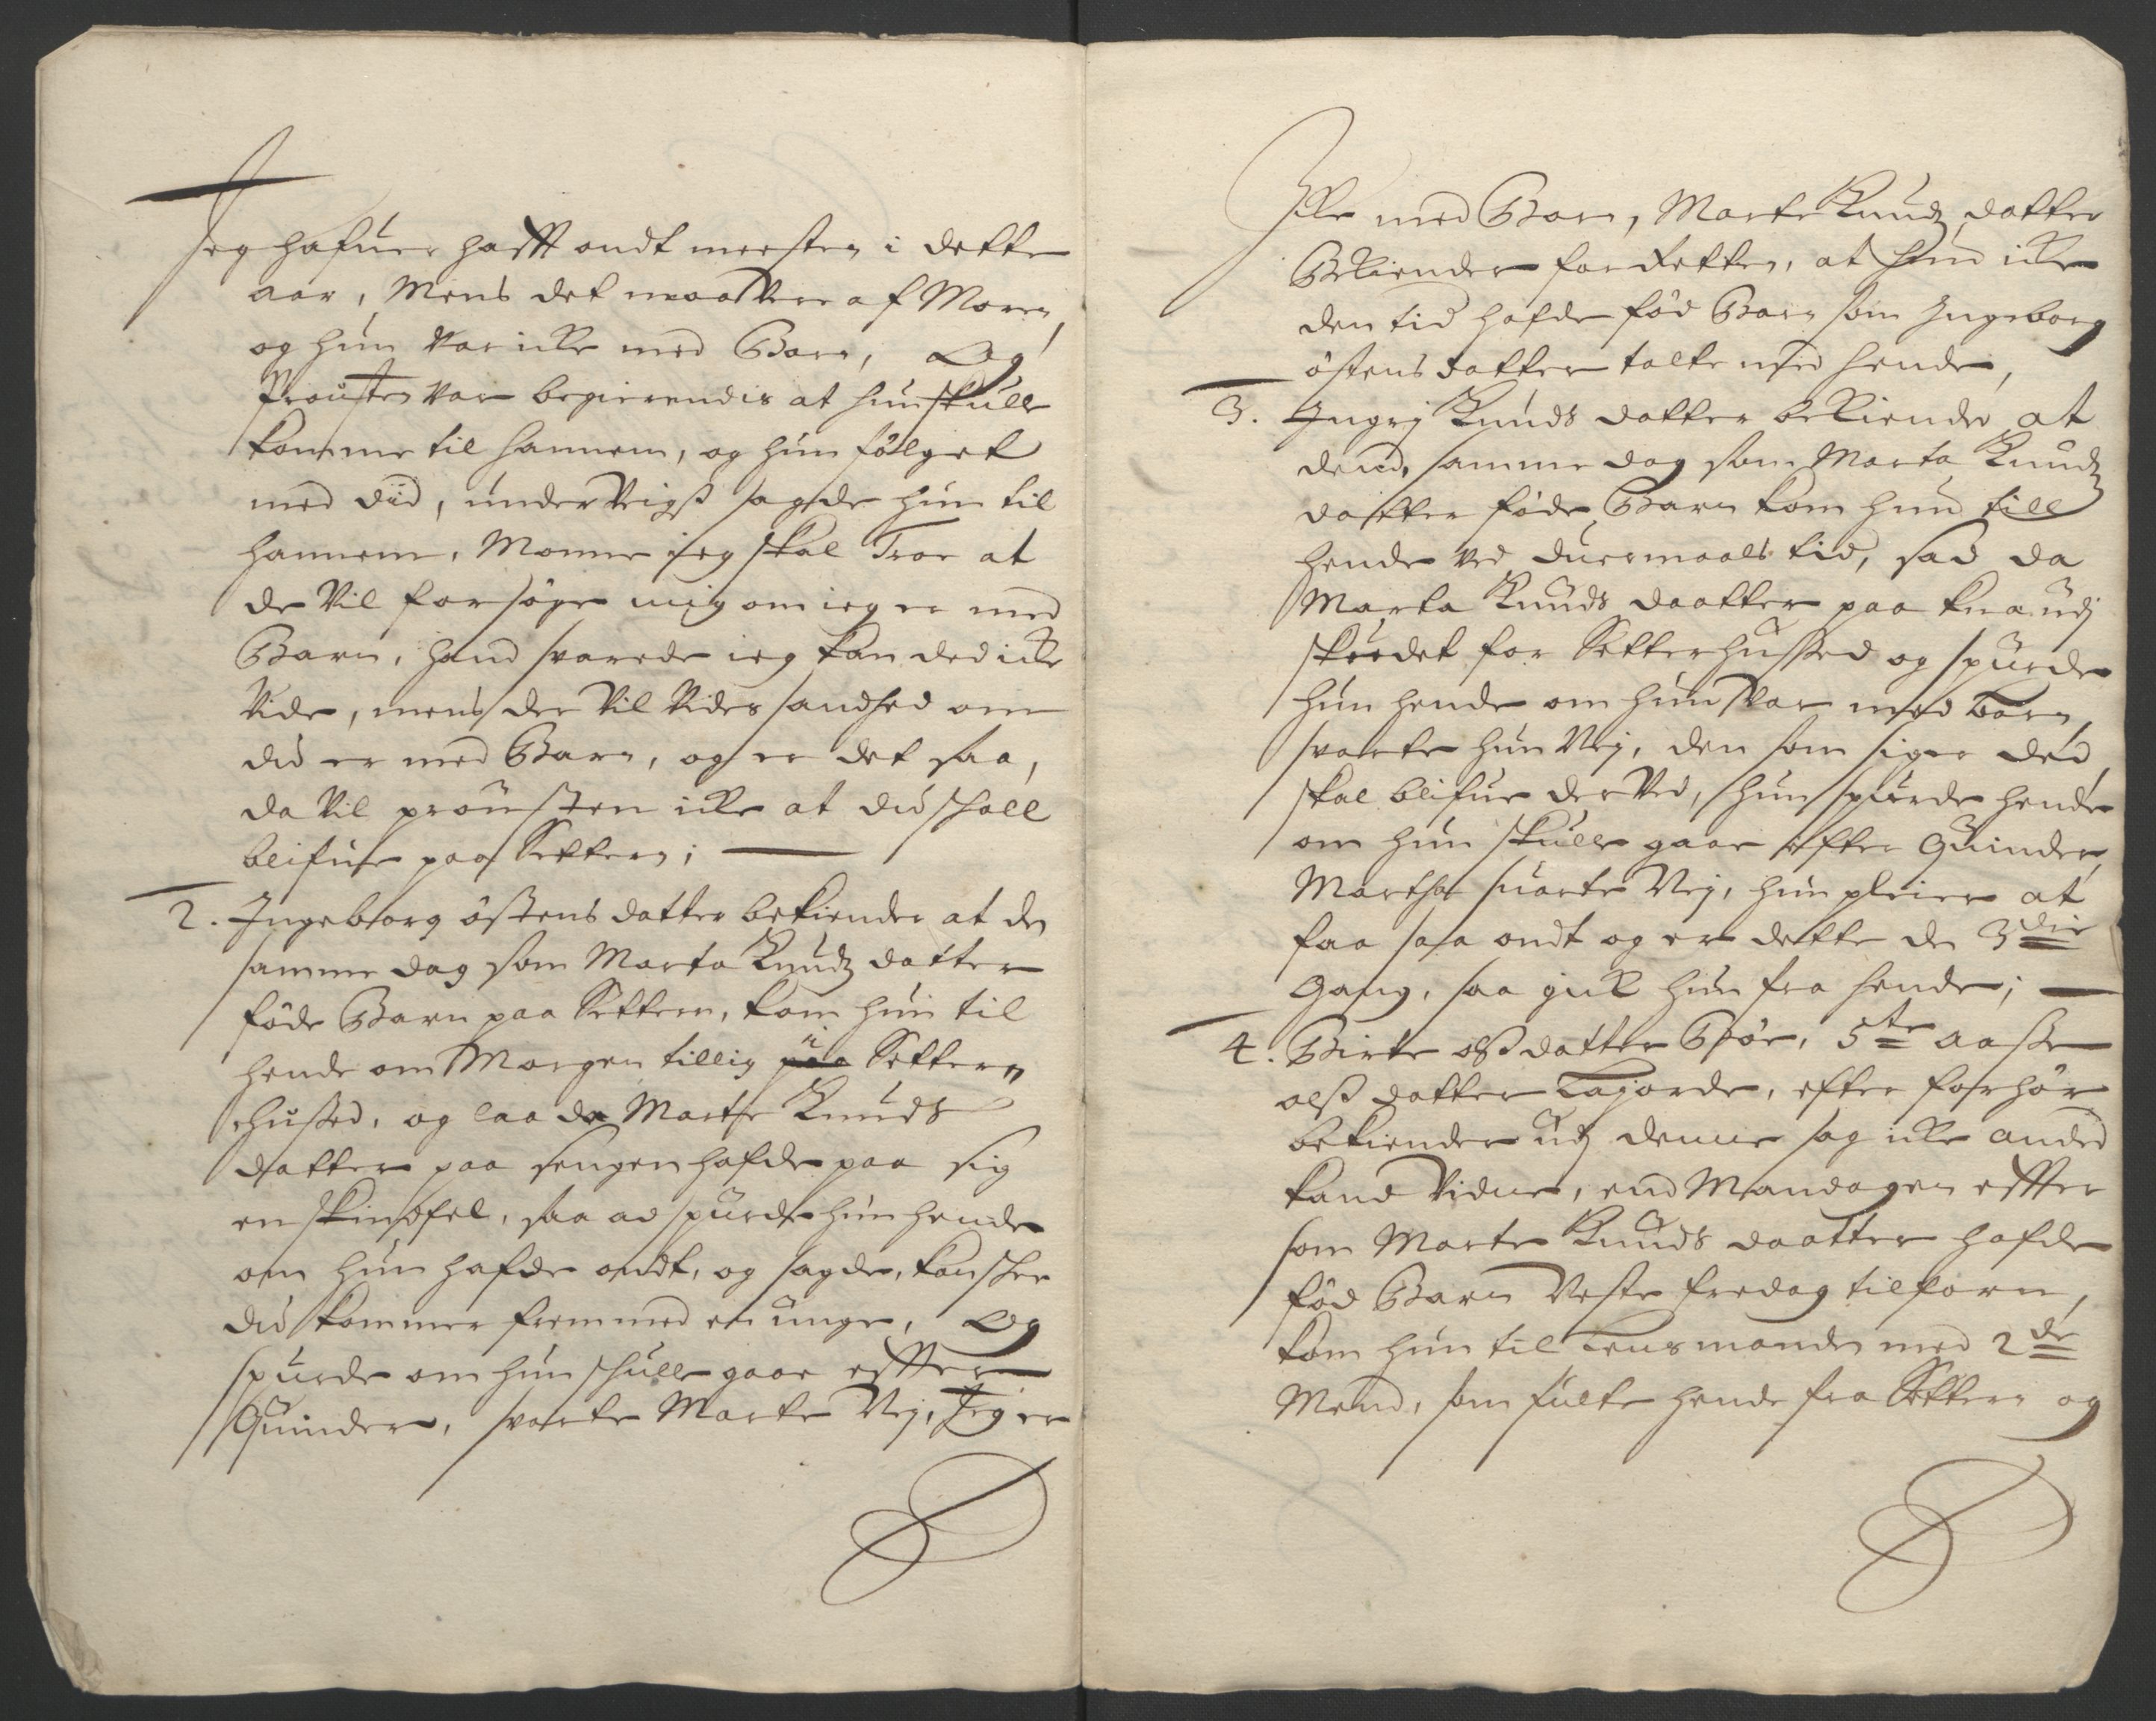 Jeg hafuer hafft ondt meesten i dette
aar, Mens det maa Vere af Moren,
og hun Var icke med Barn, Og
Prousten Var begierendis at hun skulle
komme til hannem, og hun fölget
med did, under Veigs sagde hun til
hannem, Monne ieg skal Troe at
de Vil forsöge mig om ieg er med
Barn, hand svarede ieg kan ded icke
Vide, mens der Vil Vides sandhed om
du er med Barn, og er det saa,
da Vil prousten icke at du schall
blifue paa Setteren;
2. Ingeborg östens datter bekiender at den
samme dag som Marta Knudz datter
föde Barn paa Settern, kom hun til
hende om Morgen tillig i Settern
Hussed, og laa da Marthe Knuds
datter paa sengen hafde paa sig
en skindfel, saa ad spurde hun hende
om hun hafde ondt, og sagde, kanschee
du kommer frem med en unge, Og
spurde om hun schulle gaae effter
Quinder, svarte Marte Nej, Jeg er
Icke med Barn, Marte Knudz datter
Bekiender for Retten, at hun icke
den tid hafde föd Barn som Ingeborg
östens datter talte med hende,
3. Ingrj Knuds datter bekiender at
dend samme dag som Marta Knudz
daatter föde Barn kom hun till
hende ved duermaals tid, sad da
Marta Knuds daatter paa kna udj
sküdet for Setterhussed og spurde
hun hende om hun Var med barn,
svarte hun Nej, den som siger ded
skal blifue der Ved, hun spurde hende
om hun skulle gaae efter Quinder,
Martha suarte Nej, hun pleier at
faa saa ondt og er dette de 3die
Gang, saa gick hun fra hende;
4. Birte olsdatter Böe, 5te aasse
olss datter Lagorde, efter forhör
bekiender udj denne sag icke anded
kand Vidne, end Mandagen effter
som Marte Knuds daatter hafde
föd Barn Neste fredag tilforn,
kom hun til Lensmanden med 2de
Mend, som fulte hende fra Settern og